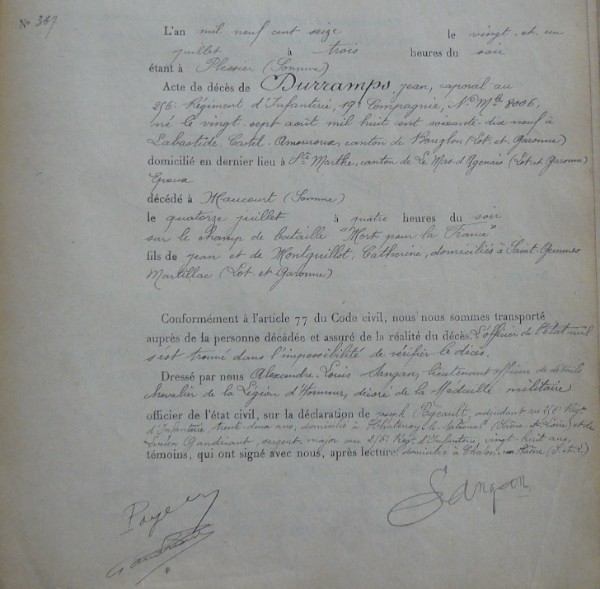 N° 367
L'an mil neuf cent seize le vingt et un
juillet à trois heures du soir
étant à Plessier (Somme)
Acte de décès de Durramps, jean, caporal au
256e Régiment d'Infanterie, 19e Compagnie, No Mle 8006,
né le vingt sept août mil huit cent soixante dix neuf à
Labastide Castel Amouroux canton de Bouglon (Lot et Garonne)
domicilié en dernier lieu à Ste Marthe, canton de Le Mas d'Agenais (Lot et Garonne)
Epoux
décédé à Haucourt (Somme)
le quatorze juillet à quatre heures du soir
sur le champ de bataille "Mort pour la France"
fils de jean et de Montguillot, Catherine, domiciliés à Saint Gemmes
Martillac (Lot et Garonne)
Conformément à l'article 77 du Code civil, nous nous sommes transporté
auprès de la personne décédée et assuré de la réalité du décès. L'officier de l'état civil
s'est trouvé dans l'impossibilité de vérifier le décès.
Dressé par nous Alexandre Louis Sangan, lieutenant officier de détails
chevalier de la Légion d'Honneur, décoré de la Médaille militaire
officier de l'état civil, sur la déclaration de Pageault, adjudant au Régt
d'Infanterie trente deux ans, domicilié à (Saône et Loire) et de
Gaudinant, sergent major au 256e Régt d'Infanterie, vingt huit ans,
témoins, qui ont signé avec nous, après lecture. domicilié à Chalon sur Saône (S. et L.)
Sangan